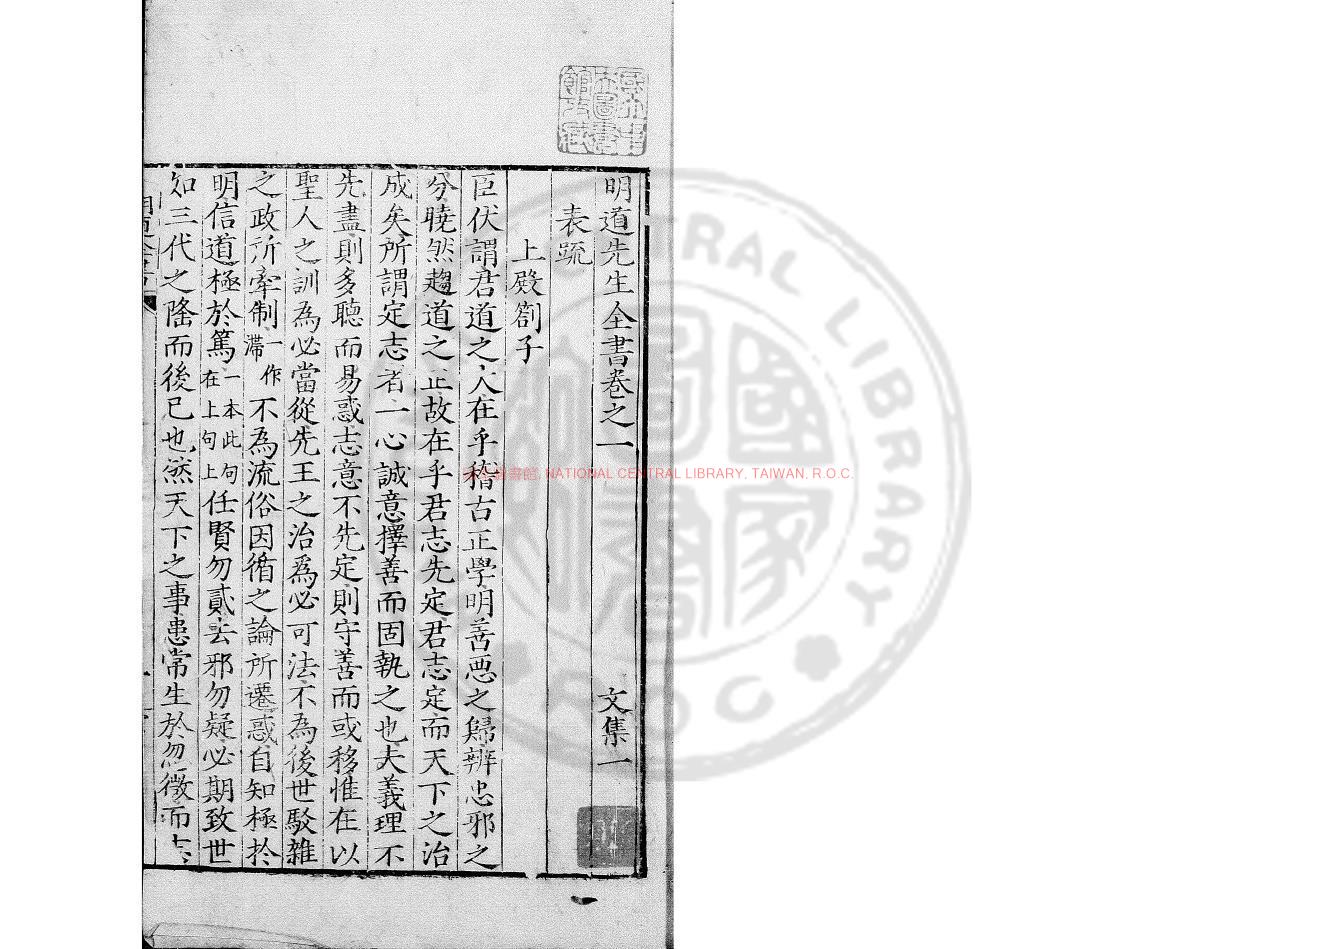 明道先生全書卷之一 文集一
表疏
上殿劄子
臣伏謂君道之大在乎稽古正學明善惡之歸辨忠邪之
分曉然趨道之正故在乎君志先定君志定而天下之治
成矣所謂定志者一心誠意擇善而固執之也夫義理不
先盡則多聽而易惑志意不先定則守善而或移惟在以
聖人之訓為必當從先王之治爲必可法不為後世駁雜
之政所牽制一作滯不為流俗因循之論所遷惑自知極於
明信道極於篤一本此句在上句上任賢勿貳去邪勿疑必期致世
如三代之隆而後已也然天下之事患常生於忽微而志
國立中央圖書館收藏
NATIONAL CENTRAL LIBRARY, TAIWAN, R.O.C.
CENTRAL LIBRARY
R O C